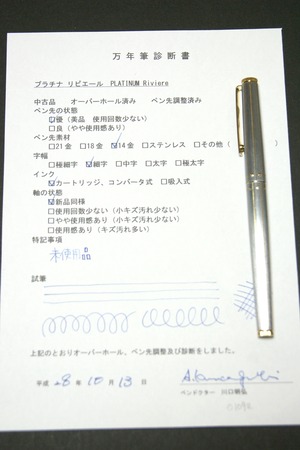 万年筆診断書
プラチナ リビエール PLATINUM Riviere
中古品 オーバーホール済み ペン調整済み
ペン先の状態
☑優（美品 使用回数少ない）
□良（やや使用感あり）
ペン先素材
□21金 □18金 ☑14金 □ステンレス □その他（ ）
字幅
□極細字 ☑細字 □中字 □太字 □極太字
インク
☑カートリッジ、コンバータ式 □吸入式
軸の状態
☑新品同様
□使用回数少ない（小キズ汚れ少ない）
□やや使用感あり（小キズ汚れ少ない）
□使用感あり（キズ汚れ多い）
特記事項
未使用品
試筆
上記のとおりオーバーホール、ペン先調整及び診断をしました。
平成 28年 10月 13日
ペンドクター 川口明弘